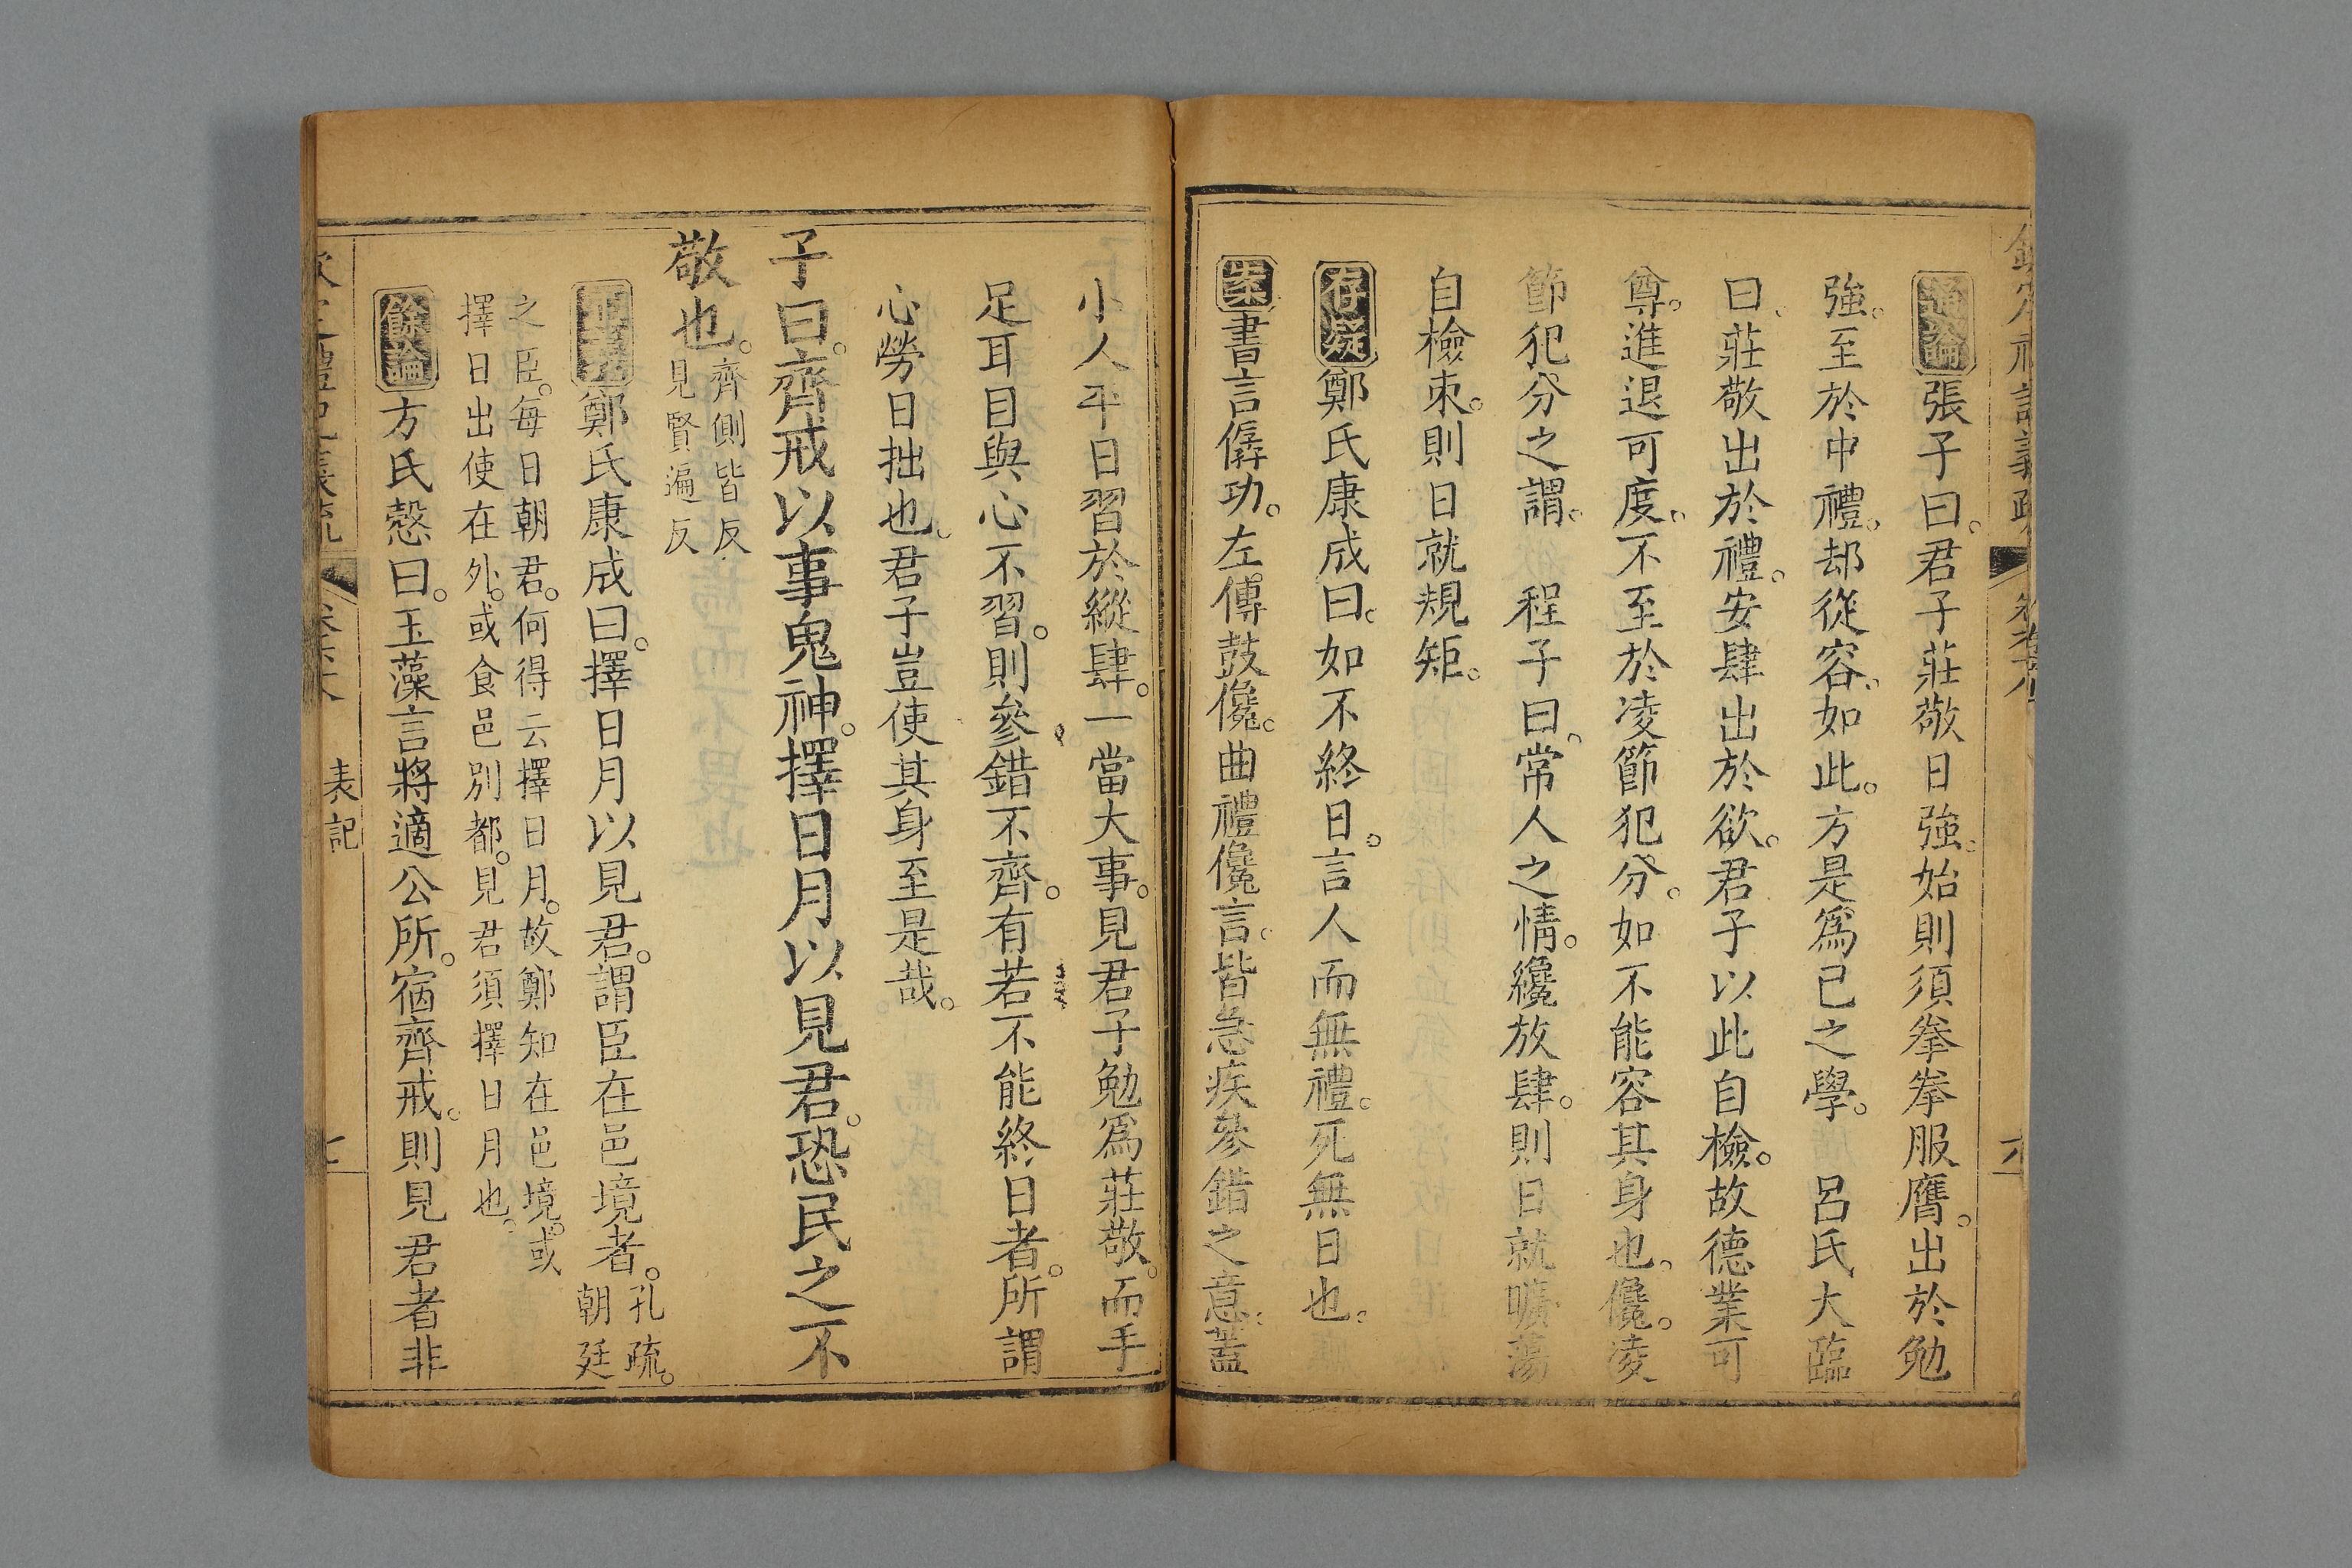 通論張子曰。君子莊敬日強。始則須拳拳服膺。出於勉
強。至於中禮。却從容。如此。方是爲己之學。 呂氏大臨
曰。莊敬出於禮。安肆出於欲。君子以此自檢。故德業可
尊。進退可度。不至於凌節犯分。如不能容其身也。儳。凌
節犯分之謂。 程子曰。常人之情。纔放肆。則日就曠蕩
自檢束。則日就規矩。
存疑鄭氏康成曰。如不終日。言人而無禮。死無日也。
案書言僝功。左傳鼓儳。曲禮儳言。皆急疾參錯之意。蓋
小人平日習於縱肆。一當大事。見君子勉爲莊敬。而手
足耳目與心不習。則參錯不齊。有若不能終日者。所謂
心勞日拙也。君子豈使其身至是哉。
子曰。齊戒以事鬼神。擇日月以見君。恐民之不
敬也。齊側皆反
見賢遍反
鄭氏康成曰。擇日月以見君。謂臣在邑境者。孔疏。
朝廷
之臣。每日朝君。何得云擇日月。故鄭知在邑境。或
擇日出使在外。或食邑別都。見君須擇日月也。
餘論方氏慤曰。玉藻言將適公所。宿齊戒。則見君者非
表記